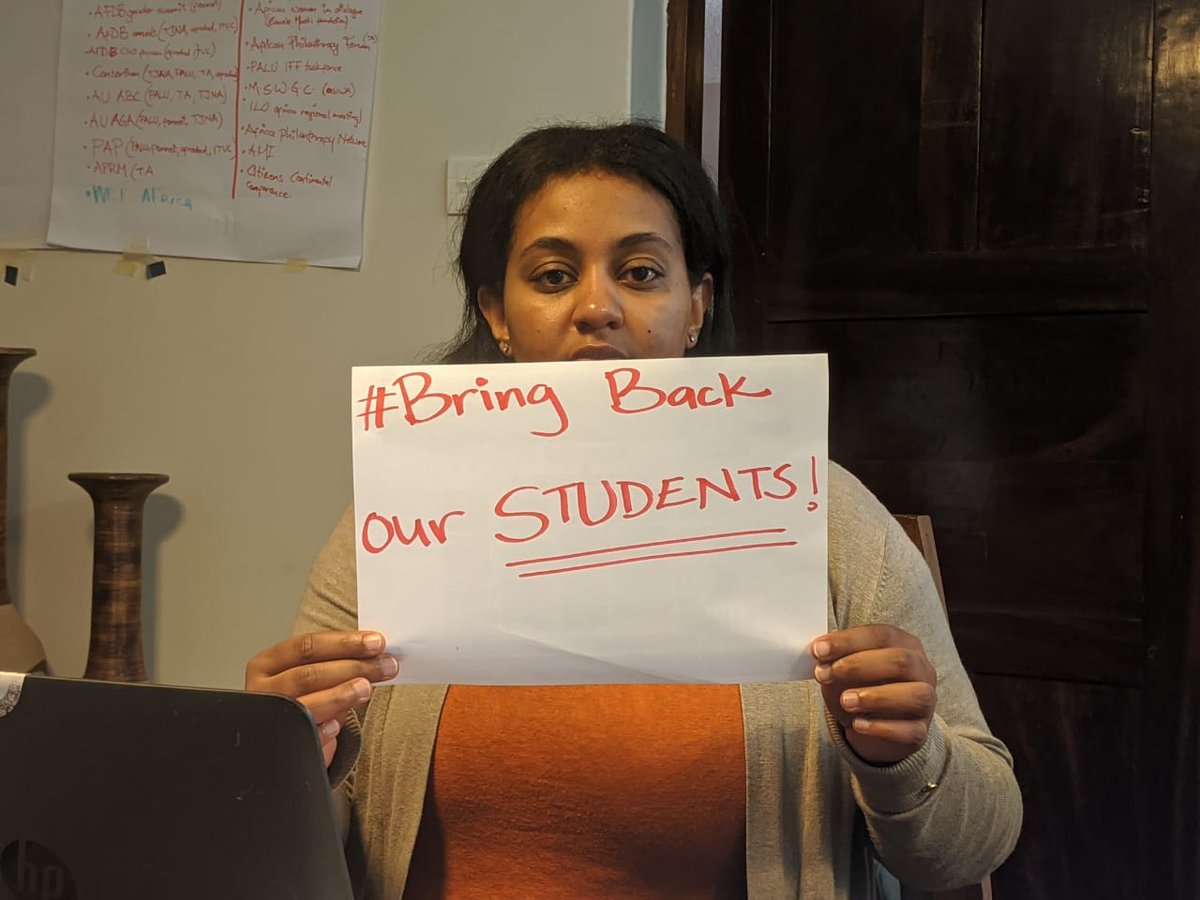 • AfDB gender summit (femnet)
• AfDB annuals (TJNA, afrodad, ITUC)
• AfDB CSO forum (afrodad, ITUC)
• Consortium (TJNA, PALU, TA, afrodad
• AU ABC (PALU, TA, TJNA)
• AU AGA (PALU, femnet, TJNA)
• PAP (PALU, femnet, afrodad, ITUC)
• APRM (TA
• WEF AFRICA
• African Women in dialogue
• African Philanthropy Forum (TA)
• PALU IFF taskforce.
• MSWGC (OSIWA)
• ILO africa regional meeting)
• Africa Philanthropy Network
• AMI
• Citizens Continental
Conference.
#Bring Back
our STUDENTS!
hp